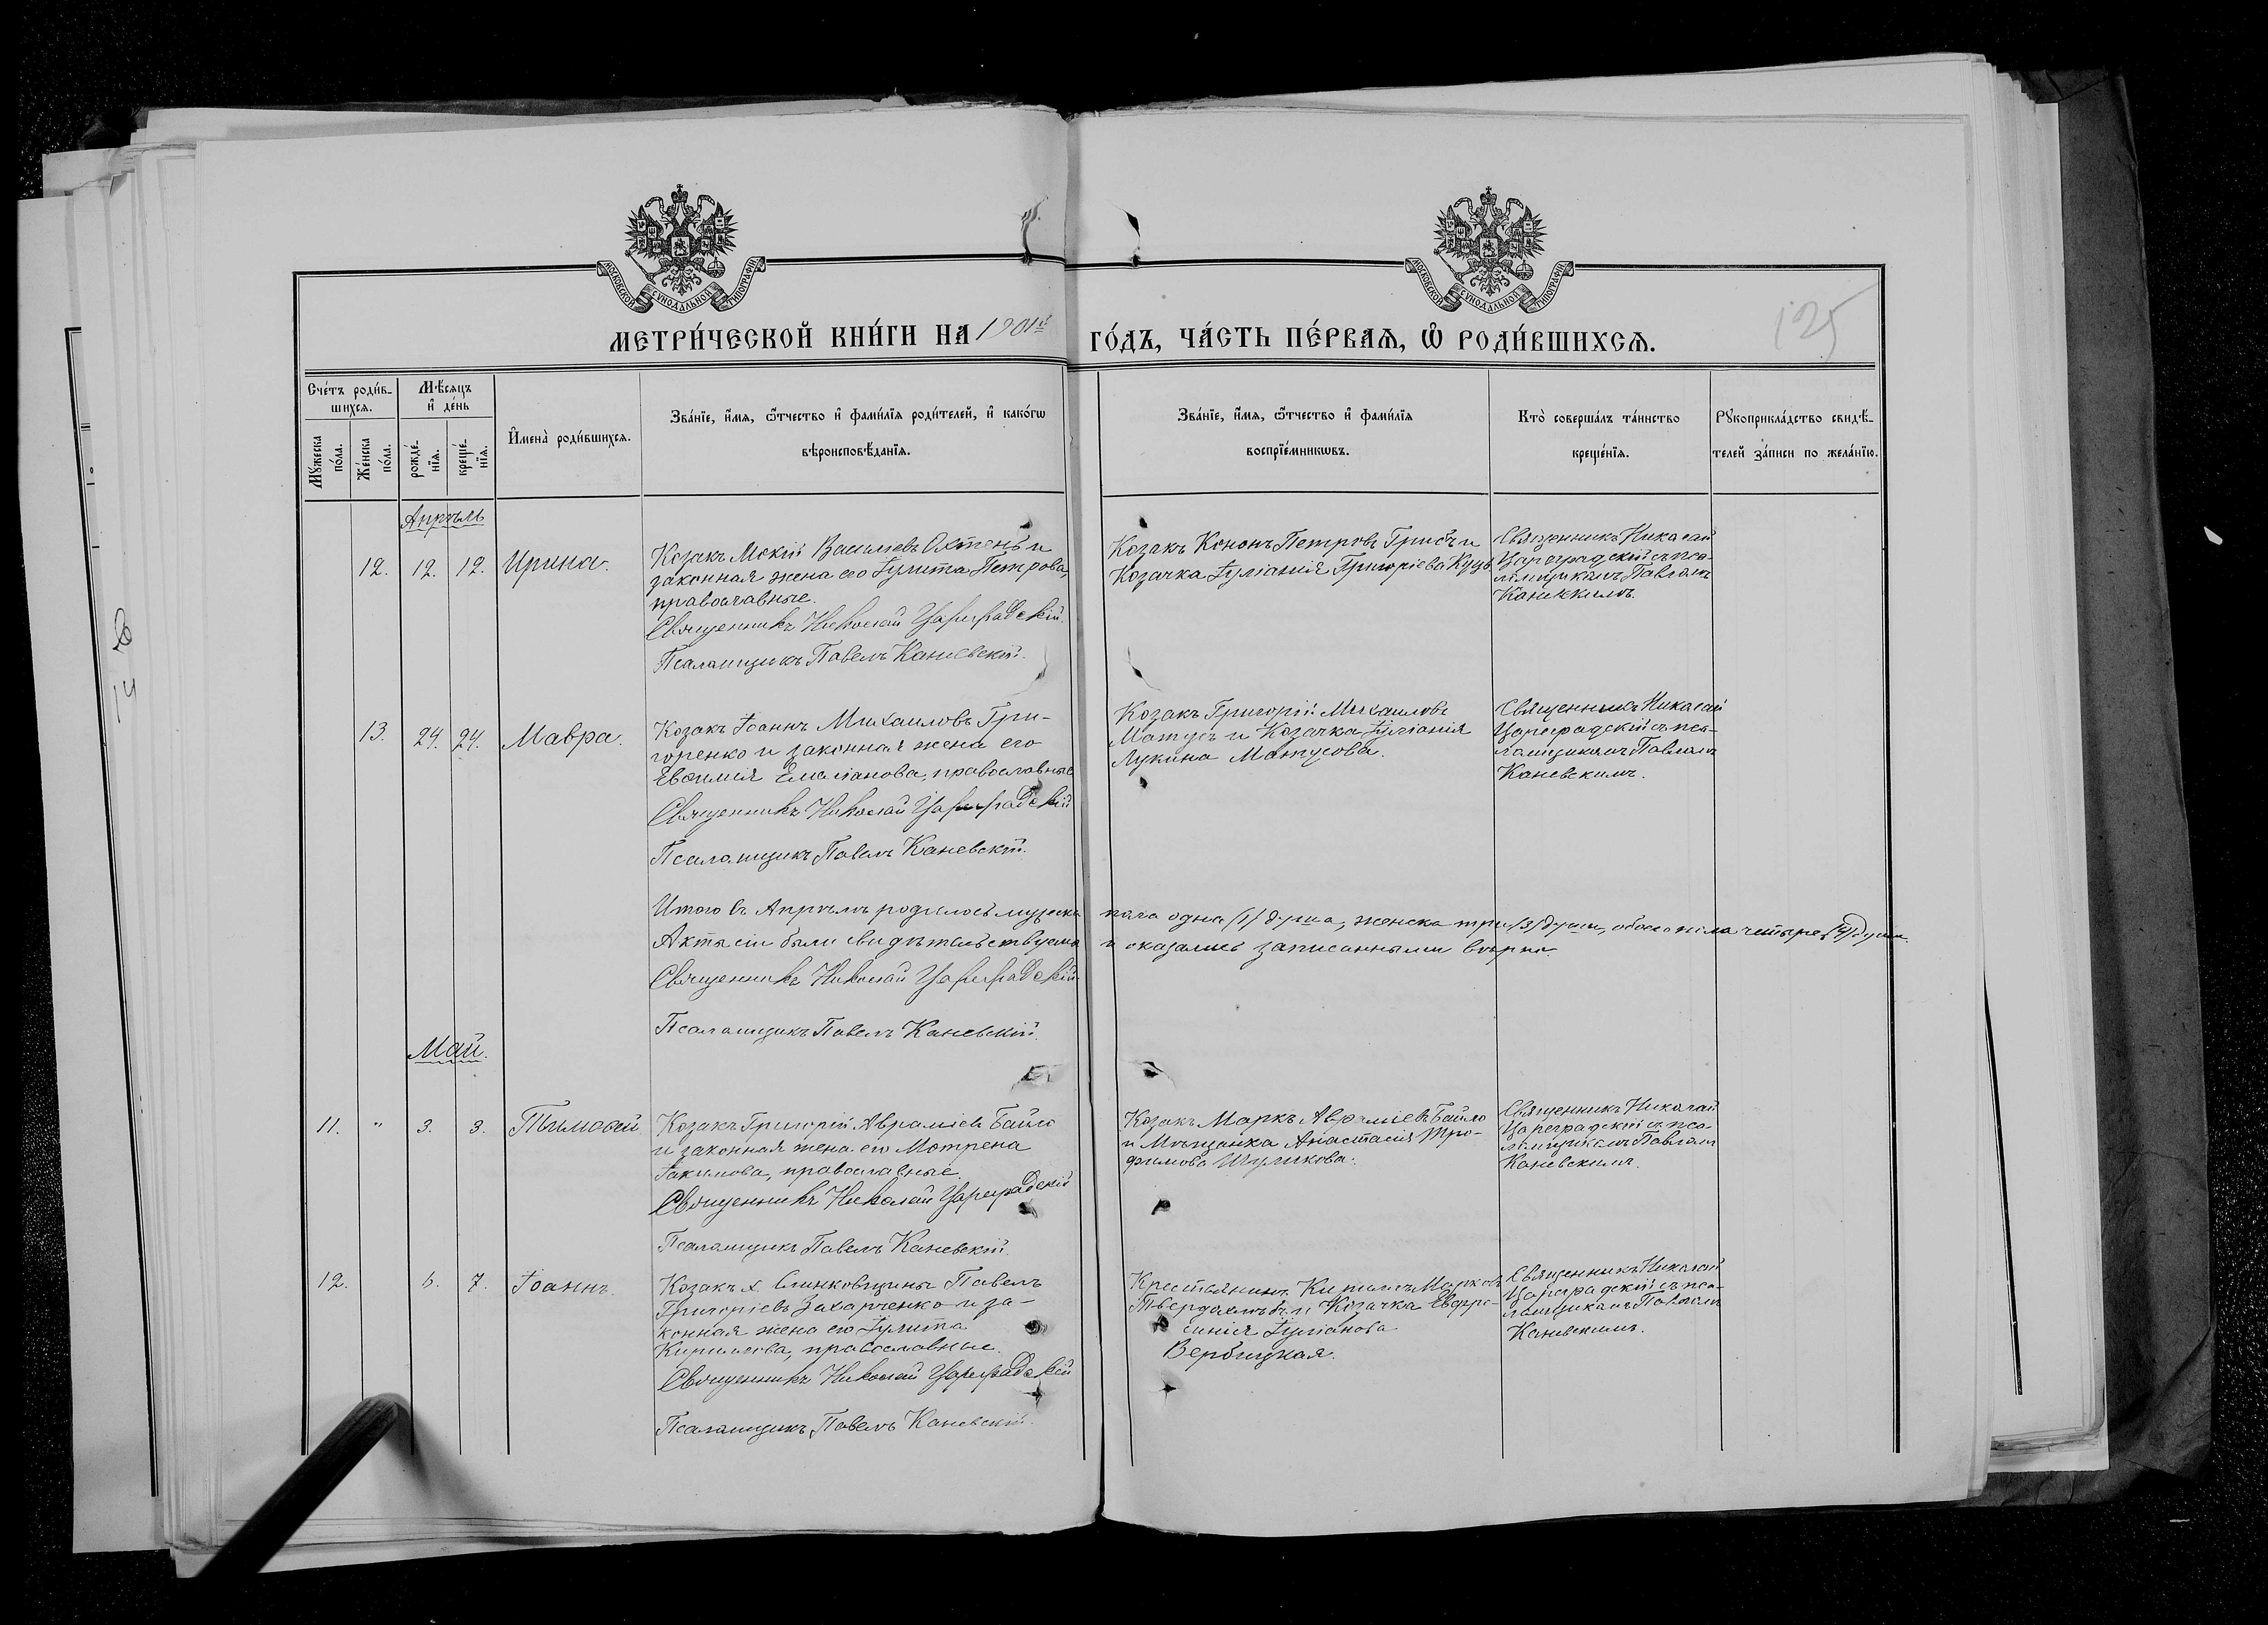 МОСКОВСКОЙ СѴНОДАЛЬНОЙ ТИПОГРАФІИ
МОСКОВСКОЙ СѴНОДАЛЬНОЙ ТИПОГРАФІИ
МЕТРИ́ЧЕСКОЙ КНИ́ГИ НА 1901й ГО́ДЪ, ЧА́СТЬ ПЕ́РВАѦ, Ѡ РОДИ́ВШИХСѦ.
125
Сче́тъ роди́в-
шихсѧ.
Мꙋ́жеска
по́ла.
Же́нска
по́ла.
Мѣ́сѧцъ
и҆ де́нь
рожде́-
нїѧ.
креще́-
нїѧ.
И҆мена̀ роди́вшихсѧ.
Зва́нїе, и҆́мѧ, ѻ҆́тчество и҆ фами́лїѧ роди́телей, и҆ како́гѡ
вѣроисповѣ́данїѧ.
Зва́нїе, и҆́мѧ, ѻ҆́тчество и҆ фами́лїѧ
воспрїе́мникѡвъ.
Кто̀ соверша́лъ та́инство
креще́нїѧ.
Рꙋкоприкла́дство свидѣ́-
телей за́писи по жела́нїю.
Апрѣль
12. 12. 12. Ирина.
Козакъ Мокій Васильевъ Охтень и
законная жена его Іулита Петрова,
православные.
Священникъ Николай Цареградскій.
Псаломщикъ Павелъ Каневскій.
Козакъ Кононъ Петровъ Грибъ и
Козачка Іуліанія Григоріева
Священникъ Николай
Цареградскій съ пса-
ломщикомъ Павломъ
Каневскимъ.
13. 24. 24. Мавра.
Козакъ Іоаннъ Михаиловъ Гри-
горенко и законная жена его
Евѳимія Емеліанова, православные
Священникъ Николай Цареградскій
Псаломщикъ Павелъ Каневскій.
Козакъ Григорій Михаиловъ
Матусъ и Козачка Іуліанія
Лукина Матусова.
Священникъ Николай
Цареградскій съ пса-
ломщикомъ Павломъ
Каневскимъ.
Итого въ Апрѣлѣ родилось мужеска пола одна (1) душа, женска три (3) души, обоего пола четыре (4) души.
Акты сіи были свидѣтельствуемы и оказались записанными вѣрно.
Священникъ Николай Цареградскій
Псаломщикъ Павелъ Каневскій.
Май.
11. " 3. 3. Тимоѳей
Козакъ Григорій Аврамiевъ Байло
и законная жена его Мотрена
Іакимова, православные.
Священникъ Николай Цареградскій
Псаломщикъ Павелъ Каневскій.
Козакъ Маркъ Аврамiевъ Байло
и Мѣщанка Анастасія Тро-
фимова Шуликова.
Священникъ Николай
Цареградскій съ пса-
ломщикомъ Павломъ
Каневскимъ.
12. 6. 7. Іоаннъ.
Козакъ х. Климковщины Павелъ
Григоріевъ Захарченко и за-
конная жена его Іулита
Кирилова, православные.
Священникъ Николай Цареградскій
Псаломщикъ Павелъ Каневскій.
Крестьянинъ
и Козачка Евфро-
синія Іуліанова
Вербицкая.
Священникъ Николай
Цареградскій съ пса-
ломщикомъ Павломъ
Каневскимъ.